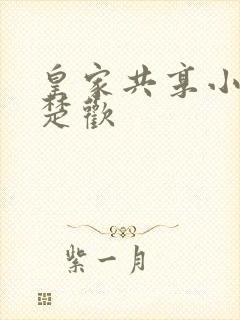 皇家共享小
楚歡
紫一月